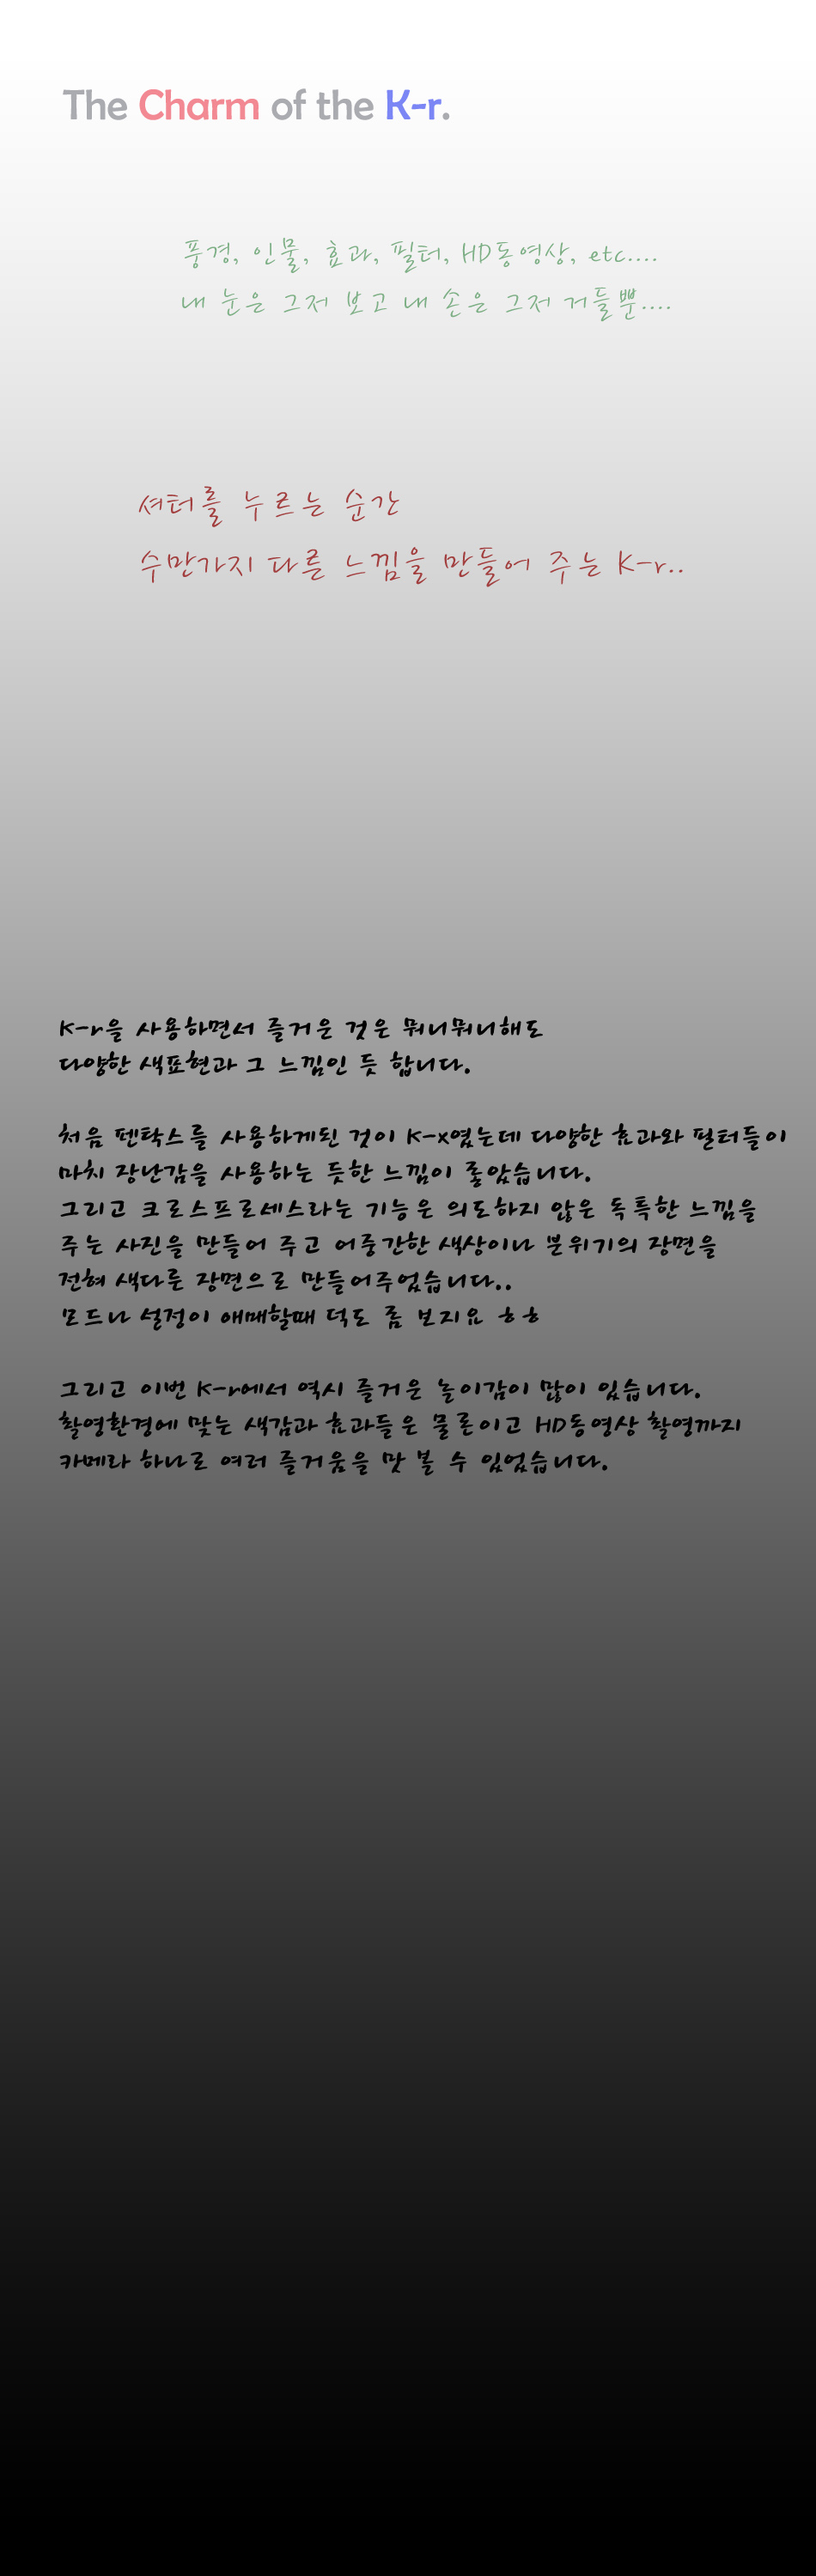 The Charm of the K-r.
풍경, 인물, 효과, 필터, HD동영상, etc....
내 눈은 그저 보고 내 손은 그저 거들뿐....
셔터를 누르는 순간
수만가지 다른 느낌을 만들어 주는 K-r..
K-r을 사용하면서 즐거운 것은 뭐니뭐니해도
다양한 색표현과 그 느낌인 듯 합니다.
처음 펜탁스를 사용하게된 것이 K-x였는데 다양한 효과와 필터들이
마치 장난감을 사용하는 듯한 느낌이 좋았습니다.
그리고 크로스프로세스라는 기능은 의도하지 않은 독특한 느낌을
주는 사진을 만들어 주고 어중간한 색상이나 분위기의 장면을
전혀 색다른 장면으로 만들어주었습니다..
모드나 설정이 애매할때 덕도 좀 보지요 ㅎㅎ
그리고 이번 K-r에서 역시 즐거운 놀이감이 많이 있습니다.
촬영환경에 맞는 색감과 효과들은 물론이고 HD동영상 촬영까지
카메라 하나로 여러 즐거움을 맛 볼 수 있었습니다.